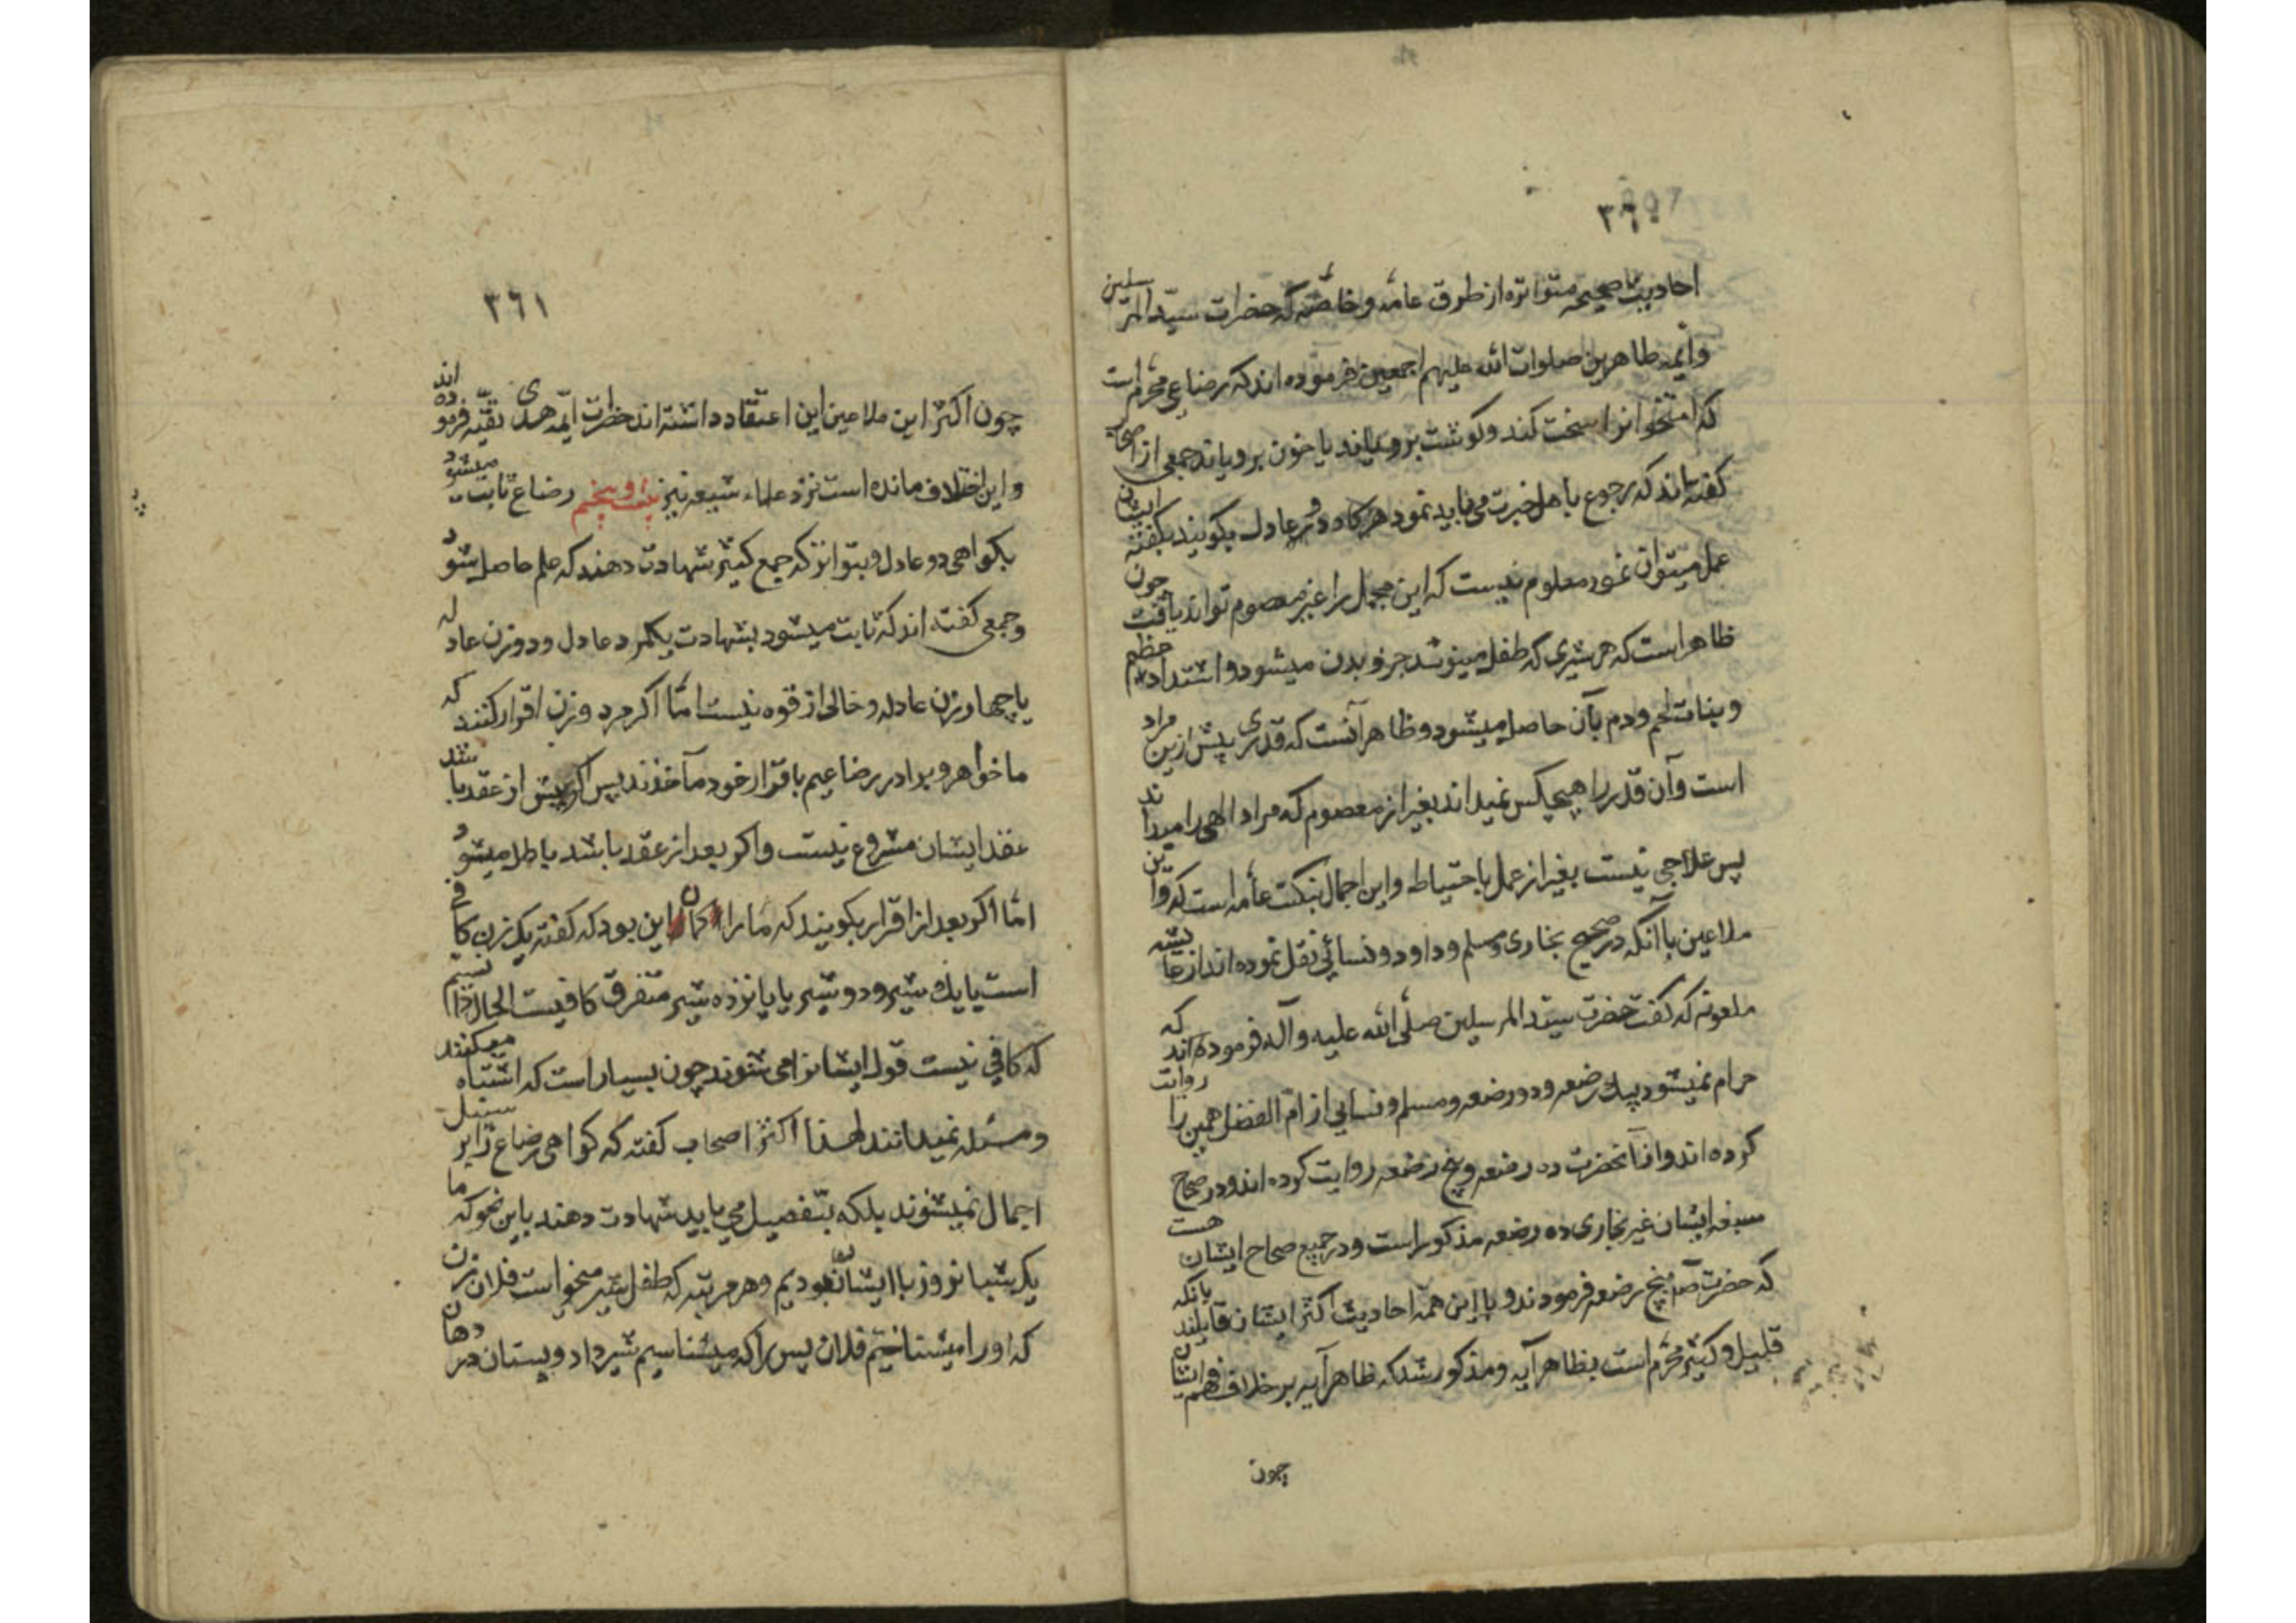 ۳۶۰
احادیث صحیحه متواتره از طرق عامه و خاصه که حضرات سید المرسلین
وایمه طاهرین صلوات الله علیهم اجمعین فرموده اند که رضاعی محرم است
که استخوانرا سخت کند و کوشت برویاند یا خون برویاند جمعی از اصحاب
کفته اند که رجوع باهل خبرت می باید نمود هرکاه دو عادل بکویند بکفته ایشان
عمل میتوان نمود معلوم نیست که این مجمل را غیر معصوم تواند یافت چون
ظاهر است که هر شیری که طفل مینوشد جزو بدن میشود و اشتداد عظم
و بنات لحم و دم بآن حاصل میشود و ظاهر آنست که قدری پیش ازین مراد
است و آن قدر را هیچکس نمیداند بغیر از معصوم که مراد الهی را میداند
پس علاجی نیست بغیر از عمل باحتیاط و این اجمال بنکت عامه است که واین
ملاعین با آنکه در صحیح بخاری و مسلم و داود و نسائی نقل نموده اند از عایشه
ملعونه که کفت حضرت سید المرسلین صلی الله علیه و آله فرموده اند که
حرام نمیشود بیک رضعه و دو رضعه و مسلم و نسایی از ام الفضل همین را روایت
کرده اند و از آنحضرت ده رضعه و پنج رضعه روایت کرده اند و در صحاح
سبعه ایشان غیر بخاری ده رضعه مذکور است و در جمیع صحاح ایشان هست
که حضرت ص پنج رضعه فرمودند و با این همه احادیث اکثر ایشان قایلند بانکه
قلیل و کثیر محرم است بظاهر آیه و مذکور شد که ظاهر آیه بر خلاف فهم ایشان
چون
۳۶۱
چون اکثر این ملاعین این اعتقاد داشته اند حضرات ایمه هدی تقیه فرموده اند
و این اختلاف مانده است نزد علماء شیعه نیز رضاع ثابت میشود
بکواهی دو عادل و بتواتر که جمع کثیر شهادت دهند که علم حاصل شود
و جمعی کفته اند که ثابت میشود بشهادت یکمرد عادل و دو زن عادله
یا چهار زن عادله و خالی از قوه نیست اما اکر مرد و زن اقرار کنند که
ما خواهر و برادر رضاعیم باقرار خود مآخذند پس اکر پیش از عقد باشد
عقد ایشان مشروع نیست و اکر بعد از عقد باشد باطل میشود
اما اکر بعد از اقرار بکویند که ما را کمان این بود که کفته یک زن کافی
است یا یک شیر و دو شیر یا پانزده شیر متفرق کافیست الحال دانستیم
که کافی نیست قول ایشانرا می شنوند چون بسیار است که اشتباه میکنند
و مسئله نمیدانند لهذا اکثر اصحاب کفته که کواهی رضاع را بر سبیل
اجمال نمیشنوند بلکه بتفصیل می باید شهادت دهند باین نحو که ما
یک شبانروز با ایشان بودیم و هر مرتبه که طفل شیر میخواست فلان زن
که او را میشناختیم فلان پسر را که میشناسیم شیر داد و پستان در دهان